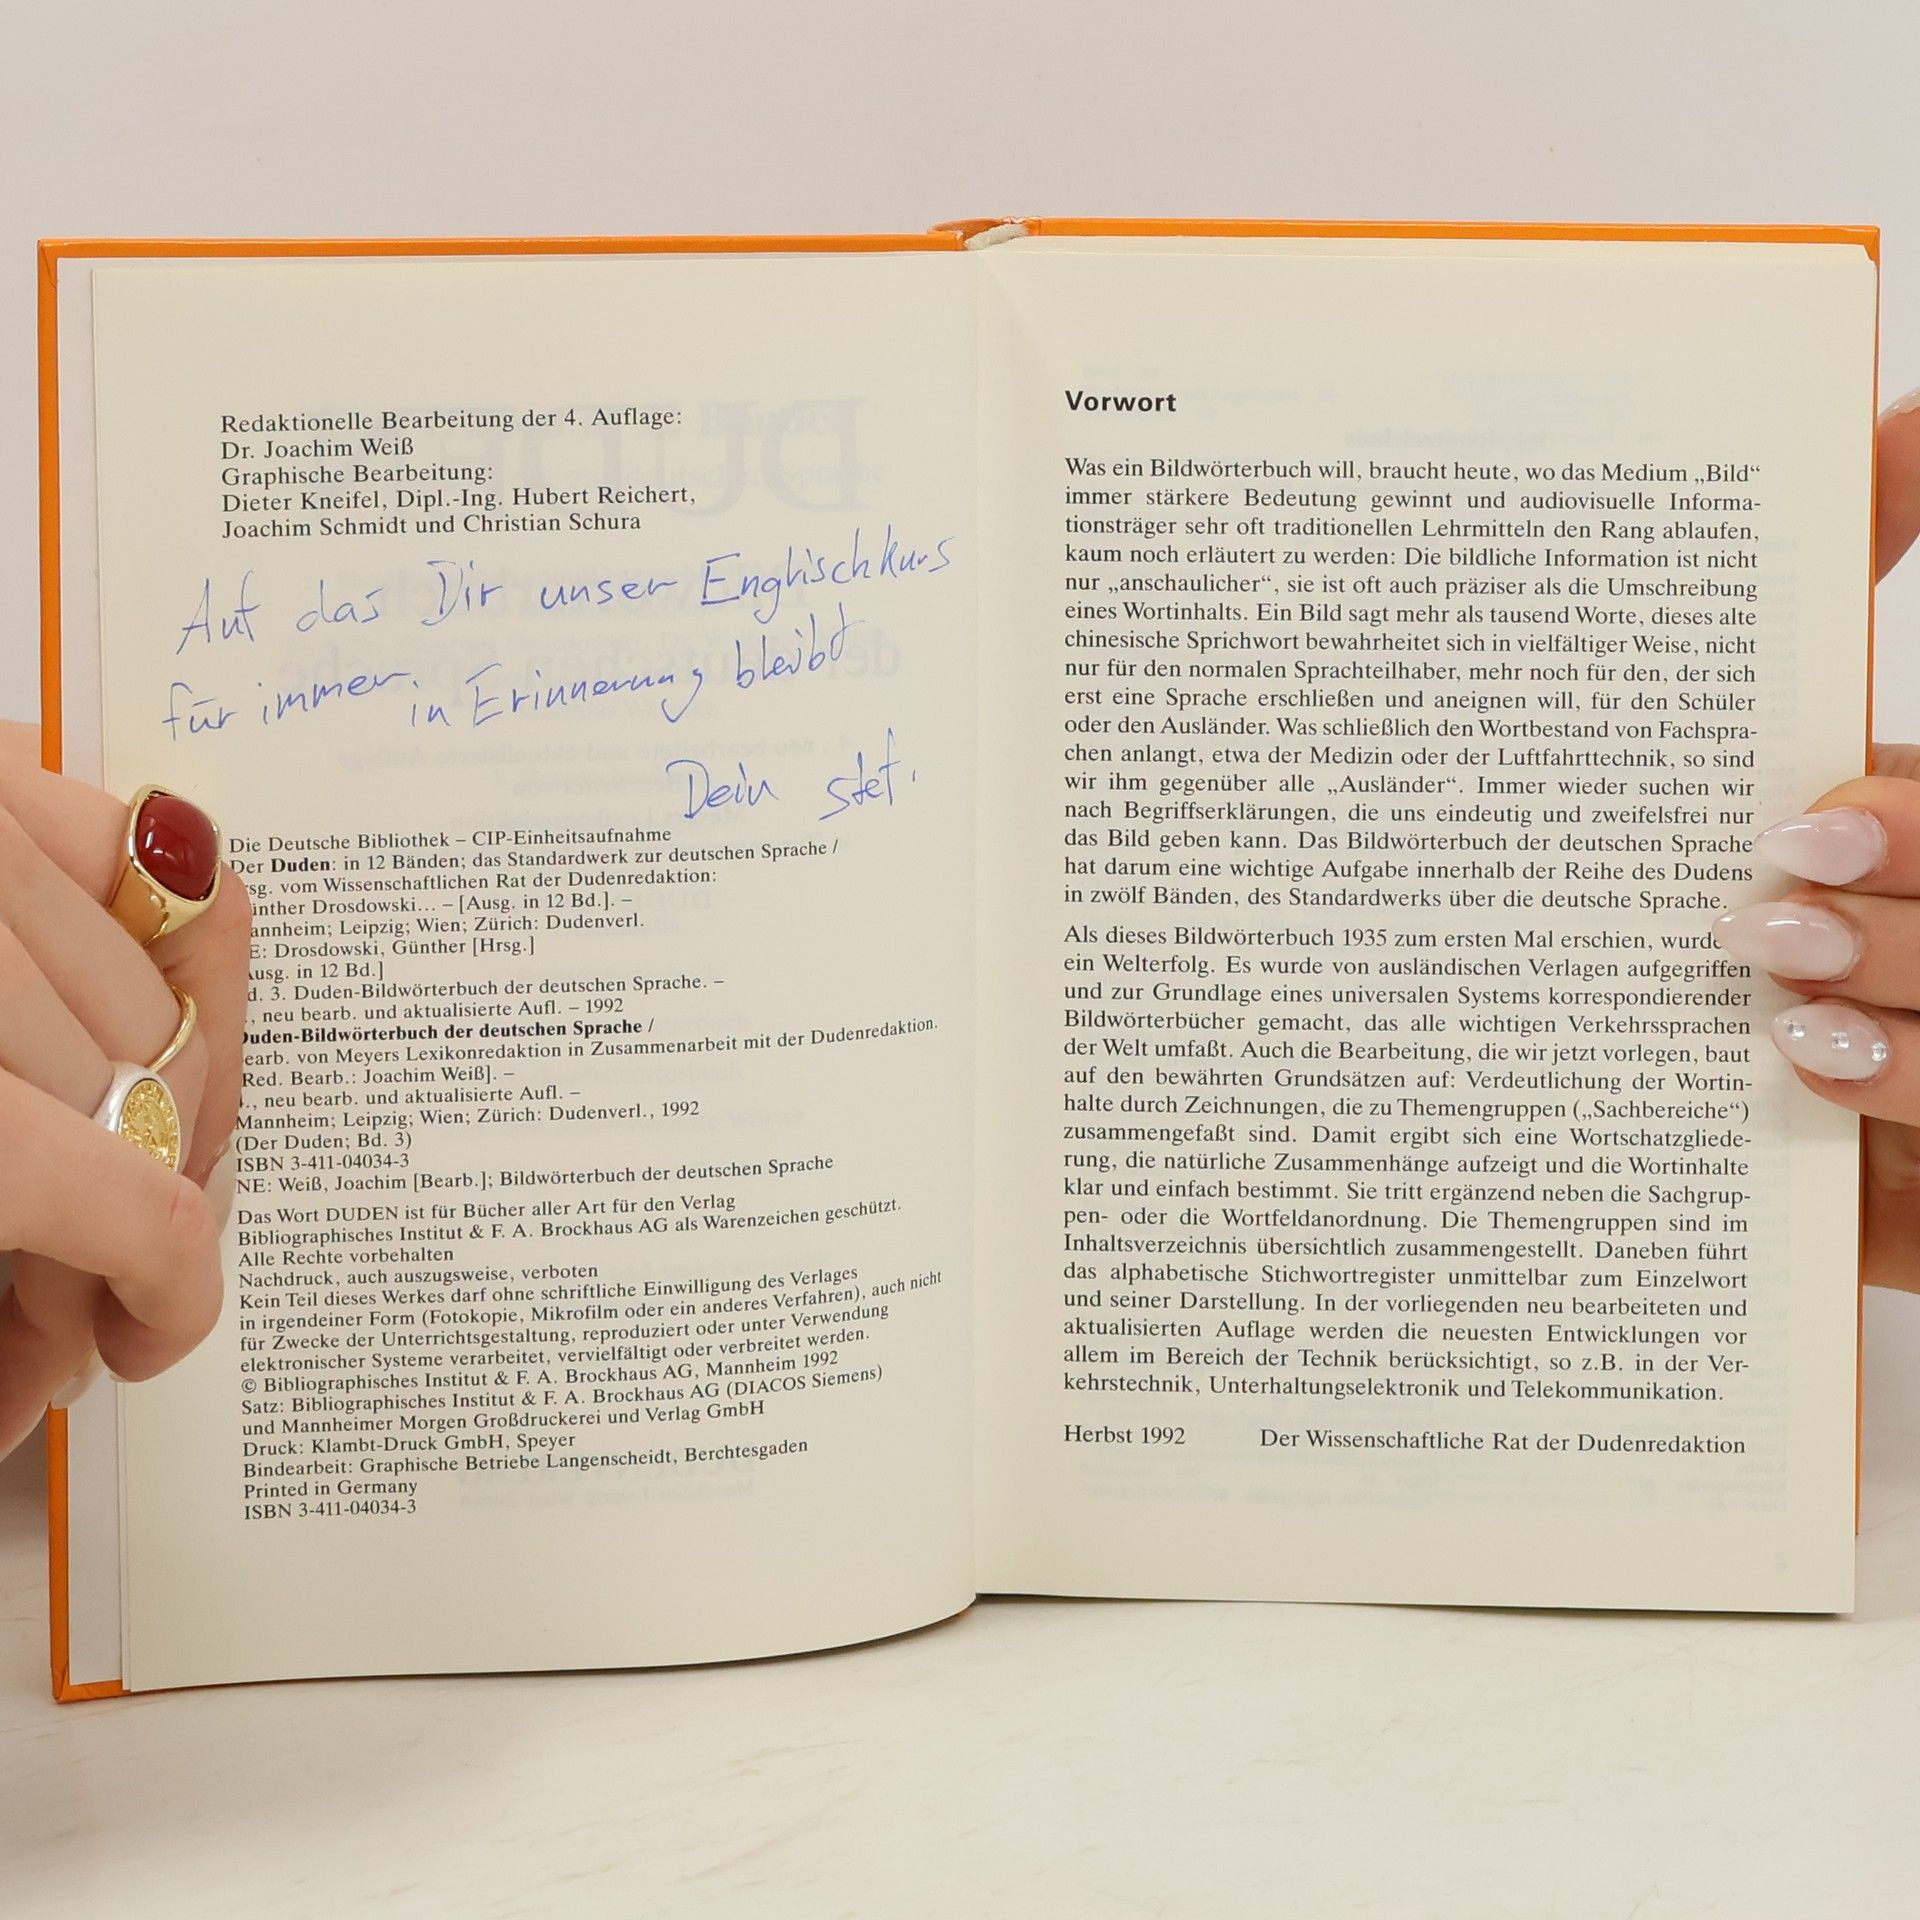 Redaktionelle Bearbeitung der 4. Auflage:
Dr. Joachim Weiß
Graphische Bearbeitung:
Dieter Kneifel, Dipl.-Ing. Hubert Reichert,
Joachim Schmidt und Christian Schura
Auf das Dir unser Englischkurs
für immer in Erinnerung bleibt
Dein stef.
Die Deutsche Bibliothek – CIP-Einheitsaufnahme
Der Duden: in 12 Bänden; das Standardwerk zur deutschen Sprache /
sg. vom Wissenschaftlichen Rat der Dudenredaktion:
ünther Drosdowski... – [Ausg. in 12 Bd.]. –
annheim; Leipzig; Wien; Zürich: Dudenverl.
E: Drosdowski, Günther [Hrsg.]
usg. in 12 Bd.]
d. 3. Duden-Bildwörterbuch der deutschen Sprache. –
., neu bearb. und aktualisierte Aufl. – 1992
Duden-Bildwörterbuch der deutschen Sprache /
earb. von Meyers Lexikonredaktion in Zusammenarbeit mit der Dudenredaktion.
Red. Bearb.: Joachim Weiß]. –
., neu bearb. und aktualisierte Aufl. –
Mannheim; Leipzig; Wien; Zürich: Dudenverl., 1992
(Der Duden; Bd. 3)
ISBN 3-411-04034-3
NE: Weiß, Joachim [Bearb.]; Bildwörterbuch der deutschen Sprache
Das Wort DUDEN ist für Bücher aller Art für den Verlag
Bibliographisches Institut & F. A. Brockhaus AG als Warenzeichen geschützt.
Alle Rechte vorbehalten
Nachdruck, auch auszugsweise, verboten
Kein Teil dieses Werkes darf ohne schriftliche Einwilligung des Verlages
in irgendeiner Form (Fotokopie, Mikrofilm oder ein anderes Verfahren), auch nicht
für Zwecke der Unterrichtsgestaltung, reproduziert oder unter Verwendung
elektronischer Systeme verarbeitet, vervielfältigt oder verbreitet werden.
© Bibliographisches Institut & F. A. Brockhaus AG, Mannheim 1992
Satz: Bibliographisches Institut & F. A. Brockhaus AG (DIACOS Siemens)
und Mannheimer Morgen Großdruckerei und Verlag GmbH
Druck: Klambt-Druck GmbH, Speyer
Bindearbeit: Graphische Betriebe Langenscheidt, Berchtesgaden
Printed in Germany
ISBN 3-411-04034-3
Vorwort
Was ein Bildwörterbuch will, braucht heute, wo das Medium „Bild“
immer stärkere Bedeutung gewinnt und audiovisuelle Informa-
tionsträger sehr oft traditionellen Lehrmitteln den Rang ablaufen,
kaum noch erläutert zu werden: Die bildliche Information ist nicht
nur „anschaulicher“, sie ist oft auch präziser als die Umschreibung
eines Wortinhalts. Ein Bild sagt mehr als tausend Worte, dieses alte
chinesische Sprichwort bewahrheitet sich in vielfältiger Weise, nicht
nur für den normalen Sprachteilhaber, mehr noch für den, der sich
erst eine Sprache erschließen und aneignen will, für den Schüler
oder den Ausländer. Was schließlich den Wortbestand von Fachspra-
chen anlangt, etwa der Medizin oder der Luftfahrttechnik, so sind
wir ihm gegenüber alle „Ausländer“. Immer wieder suchen wir
nach Begriffserklärungen, die uns eindeutig und zweifelsfrei nur
das Bild geben kann. Das Bildwörterbuch der deutschen Sprache
hat darum eine wichtige Aufgabe innerhalb der Reihe des Dudens
in zwölf Bänden, des Standardwerks über die deutsche Sprache.
Als dieses Bildwörterbuch 1935 zum ersten Mal erschien, wurde
ein Welterfolg. Es wurde von ausländischen Verlagen aufgegriffen
und zur Grundlage eines universalen Systems korrespondierender
Bildwörterbücher gemacht, das alle wichtigen Verkehrssprachen
der Welt umfaßt. Auch die Bearbeitung, die wir jetzt vorlegen, baut
auf den bewährten Grundsätzen auf: Verdeutlichung der Wortin-
halte durch Zeichnungen, die zu Themengruppen („Sachbereiche“)
zusammengefaßt sind. Damit ergibt sich eine Wortschatzgliede-
rung, die natürliche Zusammenhänge aufzeigt und die Wortinhalte
klar und einfach bestimmt. Sie tritt ergänzend neben die Sachgrup-
pen- oder die Wortfeldanordnung. Die Themengruppen sind im
Inhaltsverzeichnis übersichtlich zusammengestellt. Daneben führt
das alphabetische Stichwortregister unmittelbar zum Einzelwort
und seiner Darstellung. In der vorliegenden neu bearbeiteten und
aktualisierten Auflage werden die neuesten Entwicklungen vor
allem im Bereich der Technik berücksichtigt, so z.B. in der Ver-
kehrstechnik, Unterhaltungselektronik und Telekommunikation.
Herbst 1992 Der Wissenschaftliche Rat der Dudenredaktion